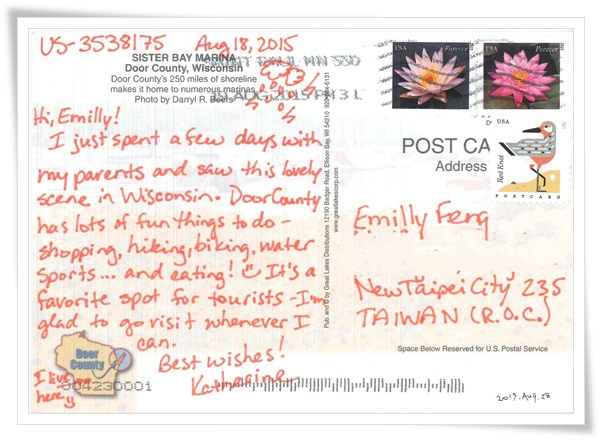 US-3538175 Aug 18, 2015
SISTER BAY MARINA
Door County, Wisconsin
Door County's 250 miles of shoreline
makes it home to numerous marinas.
Photo by Darryl R. Beers
SAINT PAUL MN 550
20 AUG 2015 PM 3 L
Hi, Emilly!
I just spent a few days with
my parents and saw this lovely
scene in Wisconsin. Door County
has lots of fun things to do -
shopping, hiking, biking, water
sports... and eating! It's a
favorite spot for tourists - I'm
glad to go visit whenever I
can.
Best wishes!
Katharine
Door
County
I live
here
004230001
Pub. and © by Great Lakes Distributions 12190 Badger Road, Ellison Bay, WI 54210
www.greatlakescorp.com
USA Forever
USA Forever
USA
Red Knot
POSTCARD
POST CA
Address
Emilly Feng
New Taipei City 235
TAIWAN (R.O.C.)
Space Below Reserved for U.S. Postal Service
2015. Aug. 28